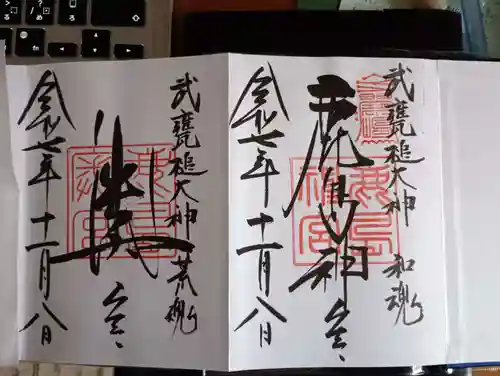 武甕槌大神 和魂
鹿島神宮
令和七年十一月八日
武甕槌大神 荒魂
奥宮
令和七年十一月八日